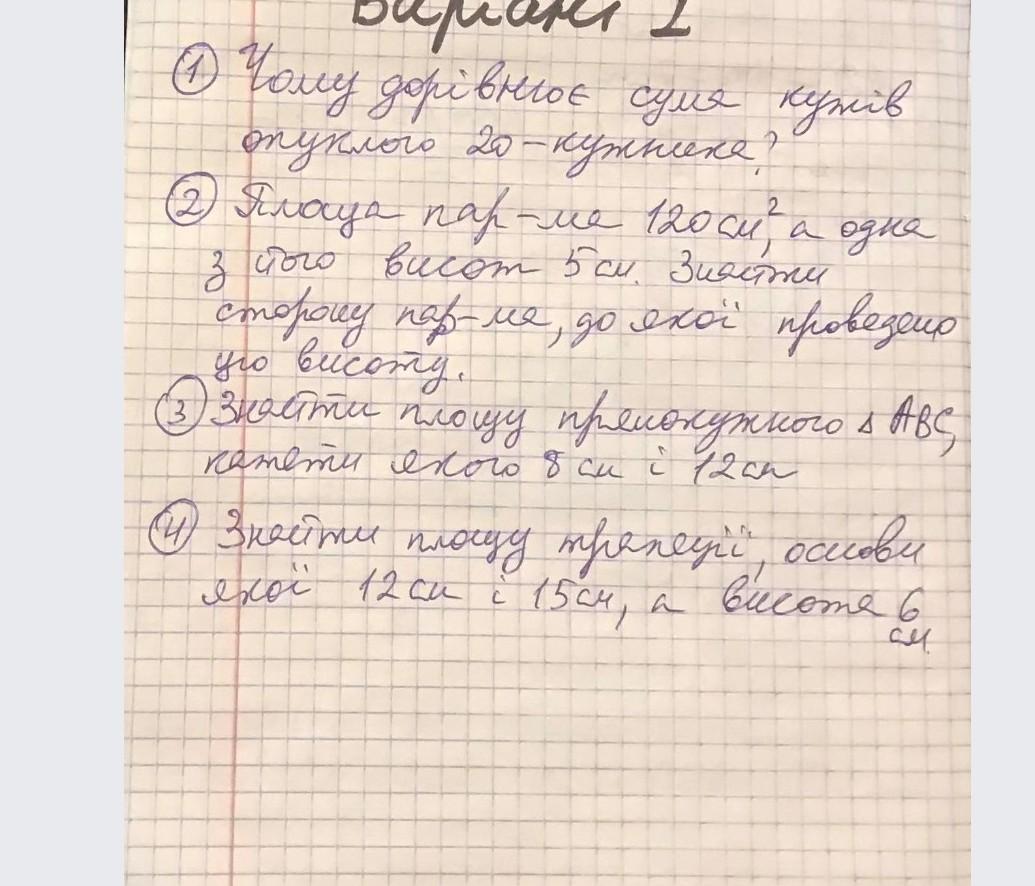 Варіант 1
① Чому дорівнює сума кутів
опуклого 20-кутника?
② Площа пар-ма 120 см², а одна
з його висот 5 см. Знайти
сторону пар-ма, до якої проведено
цю висоту.
③ Знайти площу прямокутного Δ ABC,
катети якого 8 см і 12 см
④ Знайти площу трапеції, основи
якої 12 см і 15 см, а висота 6
см.